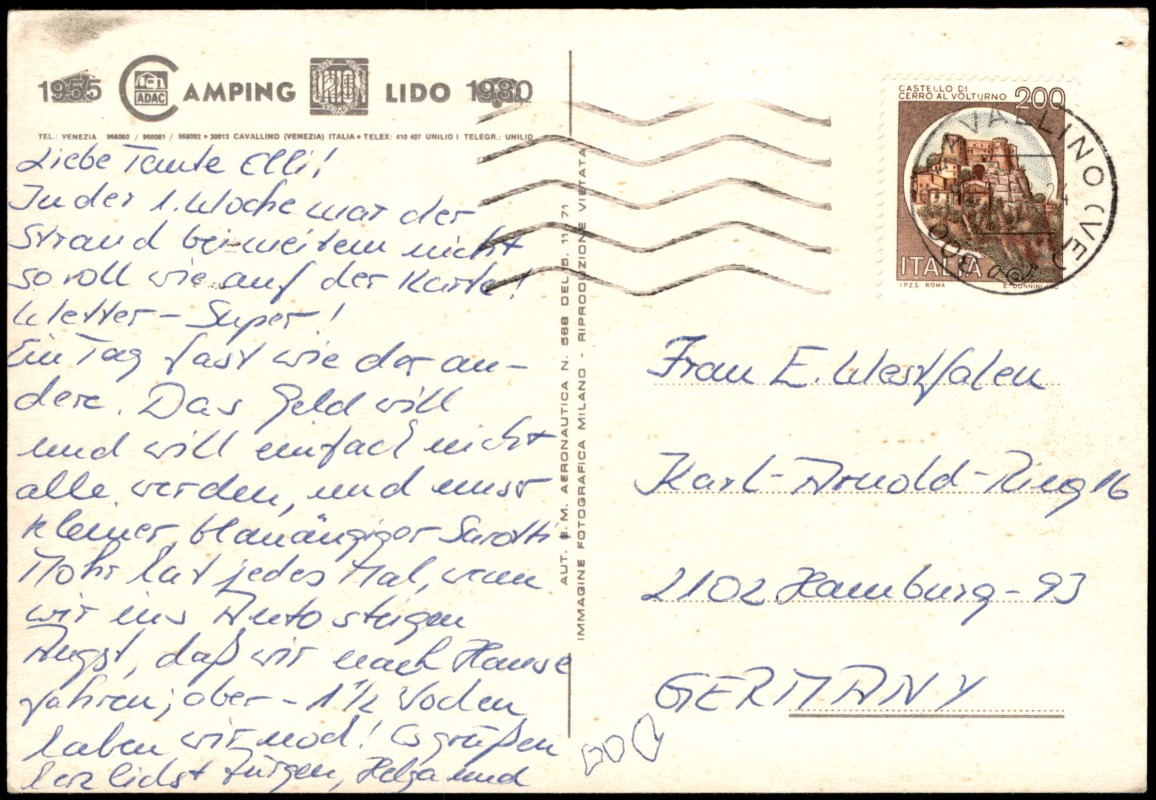 1955 CAMPING LIDO 1980
ADAC
TEL.: VENEZIA 968080 / 968081 / 968082 • 30013 CAVALLINO (VENEZIA) ITALIA • TELEX: 410 407 UNILID I TELEGR.: UNILID
Liebe Tante Elli!
In der 1. Woche war der
Strand bei weitem nicht
so voll wie auf der Karte!
Wetter – Super!
Ein Tag fast wie der an-
dere. Das Geld will
und will einfach nicht
alle werden, und unser
kleiner, blauäugiger Sarotti
Mohr hat jedes Mal, wenn
wir ins Auto steigen
Angst, daß wir nach Hause
fahren; aber – 1 1/2 Wochen
haben wir noch! Es grüßen
herzlichst Jürgen, Helga und
AUT. S. M. AERONAUTICA N. 568 DEL 5. 11. 71
IMMAGINE FOTOGRAFICA MILANO - RIPRODUZIONE VIETATA
CASTELLO DI
CERRO AL VOLTURNO 200
ITALIA
I.P.Z.S. ROMA E. DONNINI
CAVALLINO (VE)
Frau E. Westfalen
Karl-Arnold-Ring 16
2102 Hamburg-93
GERMANY